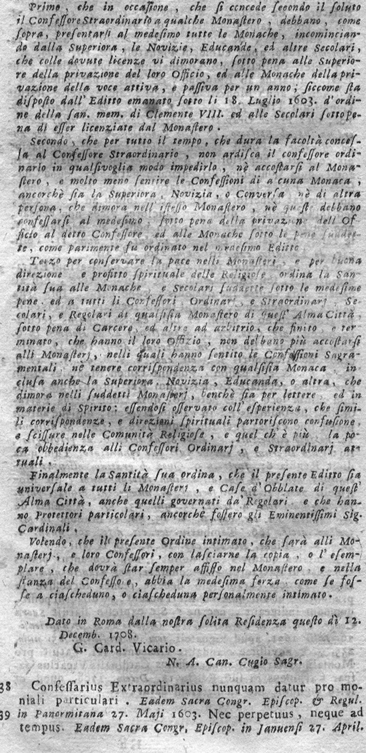 Primo, che in occasione, che si concede secondo il soluto
il Confessore Straordinario a qualche Monastero, debbano, come
sopra, presentarsi al medesimo tutte le Monache, incomincian-
do dalla Superiora, le Novizie, Educande, ed altre Secolari,
che colle dovute licenze vi dimorano, sotto pena alle Superio-
re della privazione del loro Officio, ed alle Monache della pri-
vazione della voce attiva, e passiva per un anno, siccome sta
disposto dall' Editto emanato sotto li 18. Luglio 1603. d'ordi-
ne della san. mem. di Clemente VIII. ed alle Secolari sotto pe-
na di esser licenziate dal Monastero.
Secondo, che per tutto il tempo, che dura la facoltà conces-
sa al Confessore Straordinario, non ardisca il confessore ordi-
nario in qualsivoglia modo impedirlo, nè accostarsi al Mona-
stero, e molto meno sentire le Confessioni di alcuna Monaca,
ancorchè sia la Superiora, Novizia, o Conversa, nè di altra
persona, che dimora nell' istesso Monastero, nè queste debbano
confessarsi al medesimo, sotto pena della privazione dell' Of-
ficio al detto Confessore, ed alle Monache sotto le pene suddet-
te, come parimente fu ordinato nel medesimo Editto
Terzo per conservare la pace nelli Monasterj, e per buona
direzione, e profitto spirituale delle Religiose, ordina la San-
tità sua alle Monache, e Secolari suddette sotto le medesime
pene, ed a tutti li Confessori Ordinarj, e Straordinarj Se-
colari, e Regolari di qualsisia Monastero di quest' Alma Città,
sotto pena di Carcere, ed altre ad arbitrio, che finito, e ter-
minato, che hanno il loro Offizio, non debbano più accostarsi
alli Monasterj, nelli quali hanno sentito le Confessioni Sagra-
mentali, nè tenere corrispondenza con qualsisia Monaca, in-
clusa anche la Superiora, Novizia, Educanda, o altra, che
dimora nelli suddetti Monasterj, benchè sia per lettere, ed in
materie di Spirito: essendosi osservato coll' esperienza, che simi-
li corrispondenze, e direzioni spirituali partoriscono confusione,
e scissure nelle Comunità Religiose, e quel ch' è più, la po-
ca obbedienza alli Confessori Ordinarj, e Straordinarj at-
tuali.
Finalmente la Santità sua ordina, che il presente Editto sia
universale a tutti li Monasterj, e Case d' Obblate di quest'
Alma Città, anche quelli governati da' Regolari, e che hanno
no Protettori particolari, ancorchè fossero gli Eminentissimi Sig.
Cardinali.
Volendo, che il presente Ordine intimato, che sarà alli Mo-
nasterj, e loro Confessori, con lasciarne la copia, o l' esem-
plare, che dovrà star sempre affisso nel Monastero, e nella
stanza del Confessore, abbia la medesima forza, come se fos-
se a ciascheduno, o ciascheduna personalmente intimato.
Dato in Roma dalla nostra solita Residenza questo dì 12.
Decemb. 1708.
G. Card. Vicario.
N. A. Can. Cugio Sagr.
38 Confessarius Extraordinarius nunquam datur pro mo-
niali particulari. Eadem Sacra Congr. Episcop. & Regul.
39 in Panormitana 27. Maji 1603. Nec perpetuus, neque ad
tempus. Eadem Sacra Congr. Episcop. in Januensi 27. April.